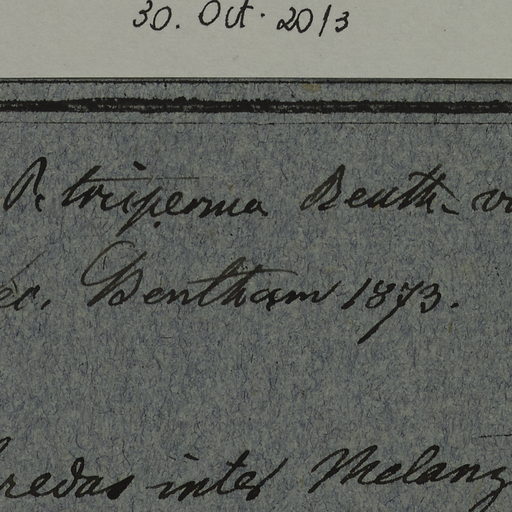 30. Oct. 2013
P. trisperma Benth. v
eo. Bentham 1873.
redas inter Melanz